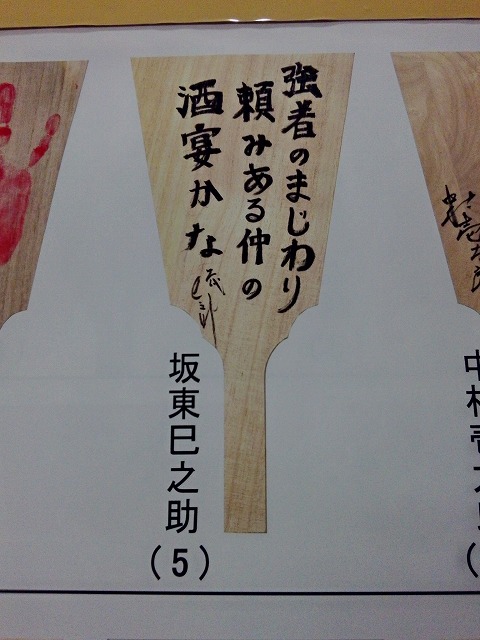 強者のまじわり
頼みある仲の
酒宴かな
坂東巳之助
(5)